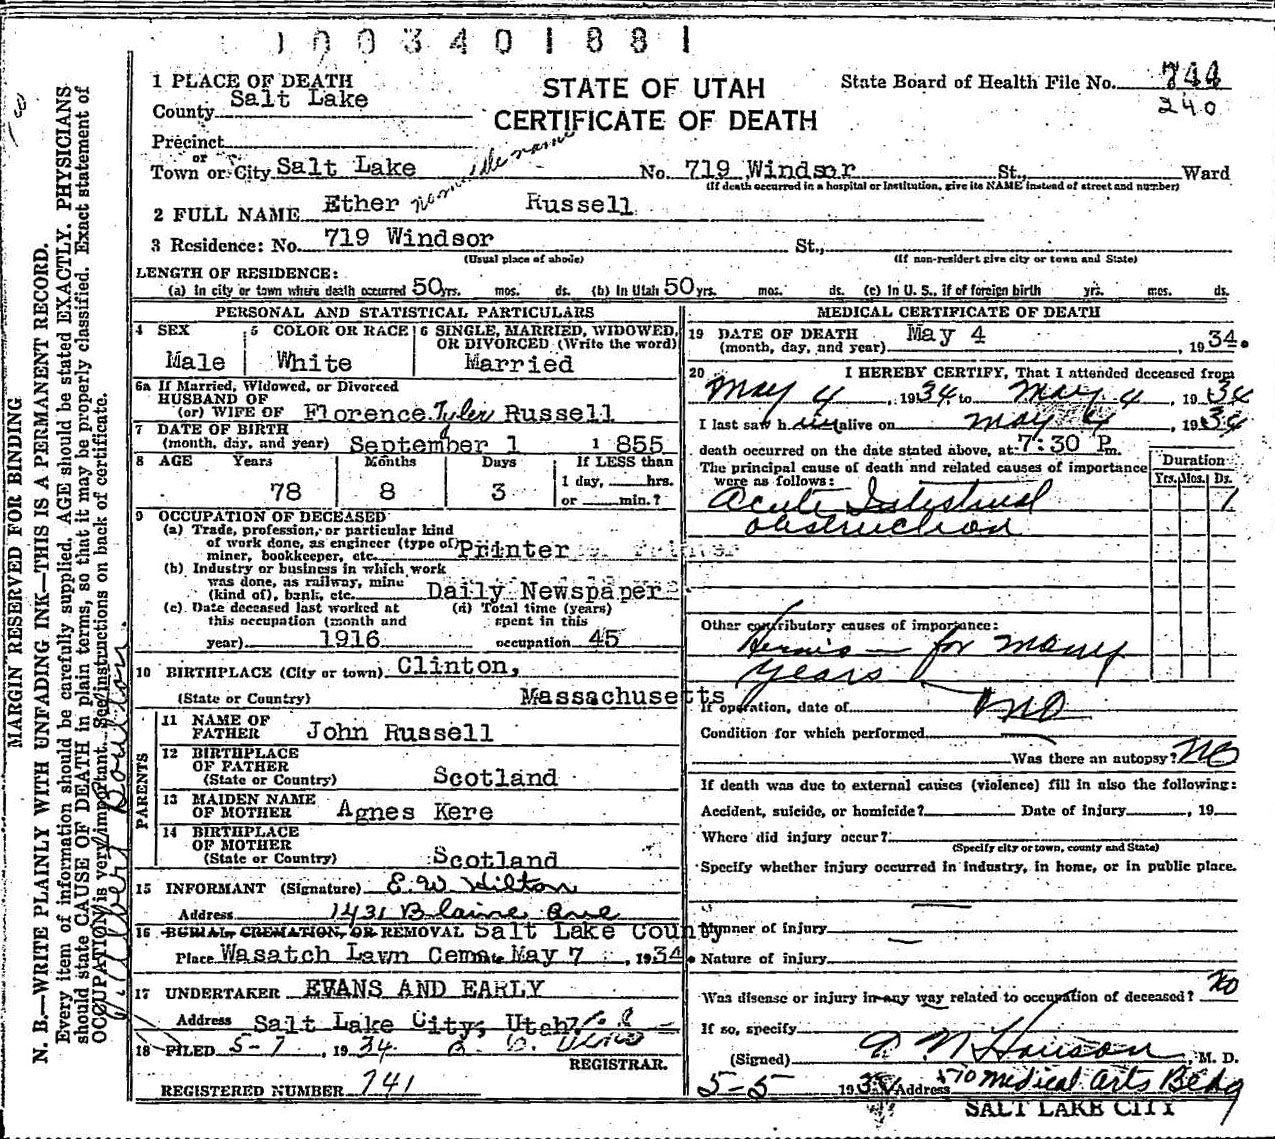 1003401881
1 PLACE OF DEATH
STATE OF UTAH
State Board of Health File No. 744
County Salt Lake
CERTIFICATE OF DEATH
240
Precinct
or
Town or City Salt Lake No. 719 Windsor St., Ward
(If death occurred in a hospital or institution, give its NAME instead of street and number)
no middle name
2 FULL NAME Ether Russell
3 Residence: No. 719 Windsor St.,
(Usual place of abode) (If non-resident give city or town and State)
LENGTH OF RESIDENCE:
(a) In city or town where death occurred 50 yrs. mos. ds. (b) In Utah 50 yrs. mos. ds. (c) In U. S., if of foreign birth yrs. mos. ds.
PERSONAL AND STATISTICAL PARTICULARS
4 SEX 5 COLOR OR RACE 6 SINGLE, MARRIED, WIDOWED,
OR DIVORCED (Write the word)
Male White Married
6a If Married, Widowed, or Divorced
HUSBAND OF
(or) WIFE OF Florence Tyler Russell
7 DATE OF BIRTH
(month, day, and year) September 1 1 855
8 AGE Years Months Days If LESS than
1 day, hrs.
78 8 3 or min.?
9 OCCUPATION OF DECEASED
(a) Trade, profession, or particular kind
of work done, as engineer (type of) Printer
miner, bookkeeper, etc.
(b) Industry or business in which work
was done, as railway, mine
(kind of), bank, etc. Daily Newspaper
(c) Date deceased last worked at (d) Total time (years)
this occupation (month and spent in this
year) 1916 occupation 45
10 BIRTHPLACE (City or town) Clinton,
(State or Country) Massachusetts
PARENTS
11 NAME OF
FATHER John Russell
12 BIRTHPLACE
OF FATHER
(State or Country) Scotland
13 MAIDEN NAME
OF MOTHER Agnes Kere
14 BIRTHPLACE
OF MOTHER
(State or Country) Scotland
15 INFORMANT (Signature) E. W. Hilton
Address 1431 Blaine Ave
16 BURIAL, CREMATION, OR REMOVAL Salt Lake County
Place Wasatch Lawn Cem. Date May 7, 1934.
17 UNDERTAKER EVANS AND EARLY
Address Salt Lake City, Utah.
18 FILED 5-7, 1934
REGISTRAR.
REGISTERED NUMBER 741
MEDICAL CERTIFICATE OF DEATH
19 DATE OF DEATH May 4
(month, day, and year) , 1934.
20 I HEREBY CERTIFY, That I attended deceased from
May 4, 1934, to May 4, 1934
I last saw him alive on May 4, 1934
death occurred on the date stated above, at 7:30 P.m.
The principal cause of death and related causes of importance
were as follows:
Duration
Yrs. Mos. Ds.
Acute Intestinal 1
obstruction
Other contributory causes of importance:
Hernia — for many
years
If operation, date of no
Condition for which performed
Was there an autopsy? No
If death was due to external causes (violence) fill in also the following:
Accident, suicide, or homicide? Date of injury , 19
Where did injury occur?
(Specify city or town, county and State)
Specify whether injury occurred in industry, in home, or in public place.
Manner of injury
Nature of injury
Was disease or injury in any way related to occupation of deceased? no
If so, specify
(Signed) , M. D.
5-5 1934 Address 510 Medical Arts Bldg
SALT LAKE CITY
MARGIN RESERVED FOR BINDING
N. B.—WRITE PLAINLY WITH UNFADING INK—THIS IS A PERMANENT RECORD.
Every item of information should be carefully supplied. AGE should be stated EXACTLY. PHYSICIANS
should state CAUSE OF DEATH in plain terms, so that it may be properly classified. Exact statement of
OCCUPATION is very important. See instructions on back of certificate.